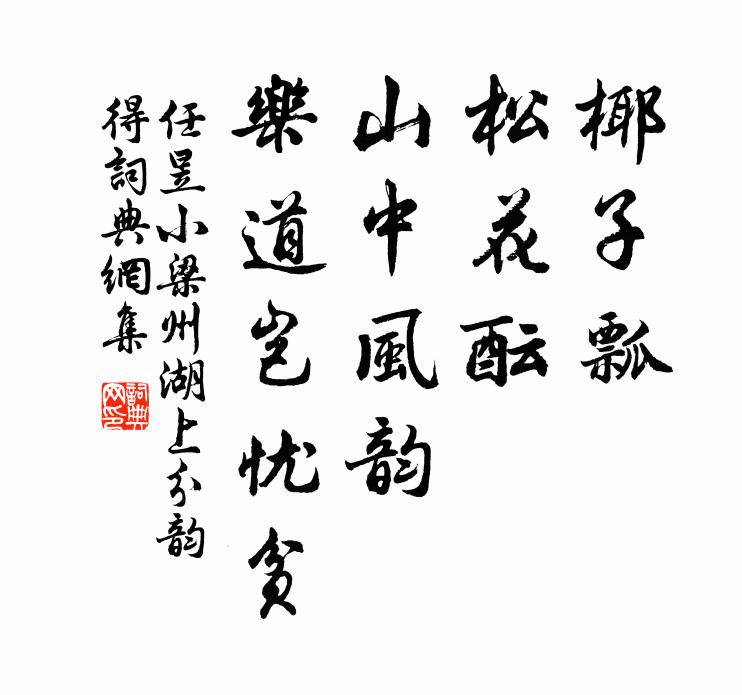 椰子瓢
松花酝
山中風韵
樂道岂忧贫
任昱小梁州湖上分韵
得詞典網集
詞典网印